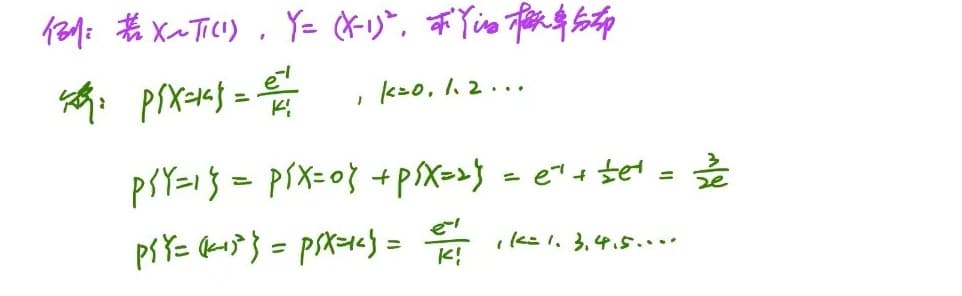 例: 若 X~π(1), Y=(X-1)², 求Y的概率分布
解: P{X=k} = e⁻¹/k! , k=0, 1, 2 ...
P{Y=1} = P{X=0} + P{X=2} = e⁻¹ + ½e⁻¹ = 3/2e
P{Y=(k-1)²} = P{X=k} = e⁻¹/k! , k=1, 3, 4, 5....